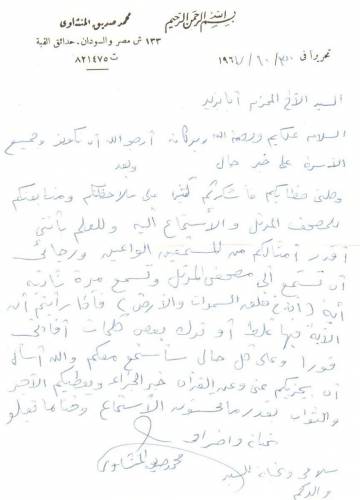 بسم الله الرحمن الرحيم
محمد صديق المنشاوى
١٣٣ ش مصر والسودان - حدائق القبة
ت ٨٢١٤٧٥
تحريرا فى
السيد الأخ المحترم
السلام عليكم ورحمة الله وبركاته أرجو الله أن تكونوا وجميع
الأسرة على خير حال وبعد
وصلنى خطابكم فأشكركم كثيرا على ملاحظتكم ومتابعتكم
للمصحف المرتل والاستماع إليه وللعلم بأننى
أقدر أمثالكم من المستمعين الواعين ورجائى
أن تستمع إلى مصحفى المرتل وتسمع مرة ثانية
آية ( الذى خلق السموات والأرض ) فإذا رأيتم أن
الآية فيها غلط أو ترك بعض كلمات
فورا وعلى كل حال سأستمع معكم والله أسأل
أن يجزيكم عنى وعن القرآن خير الجزاء ويعطيكم الأجر
والثواب بقدر ما تحسنون الاستماع وختاما تقبلوا
تحياتى
محمد صديق المنشاوى
سلامى وتحياتى للسيد
والدكم